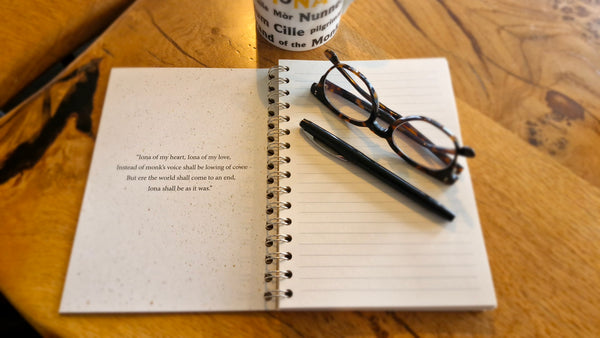 Mòr Nunne
Cille pilgri
nd of the Mon
"Iona of my heart, Iona of my love,
Instead of monk's voice shall be lowing of cows
But ere the world shall come to an end,
Iona shall be as it was."